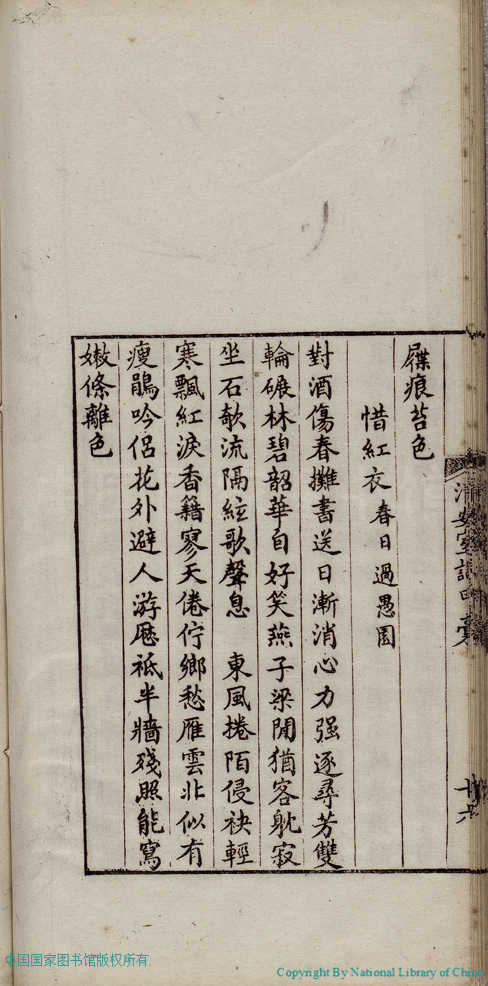 屧痕苔色
惜紅衣 春日過愚園
對酒傷春攤書送日漸消心力强逐尋芳雙
輪碾林碧韶華自好笑燕子梁閒猶客耽寂
坐石欹流隔絃歌聲息　東風捲陌侵袂輕
寒飄紅淚香籍寥天倦佇鄉愁雁雲北似有
瘦鵑吟侶花外避人游屐祗半牆殘照能寫
嫩條離色
中国国家图书馆版权所有
Copyright By National Library of Chin